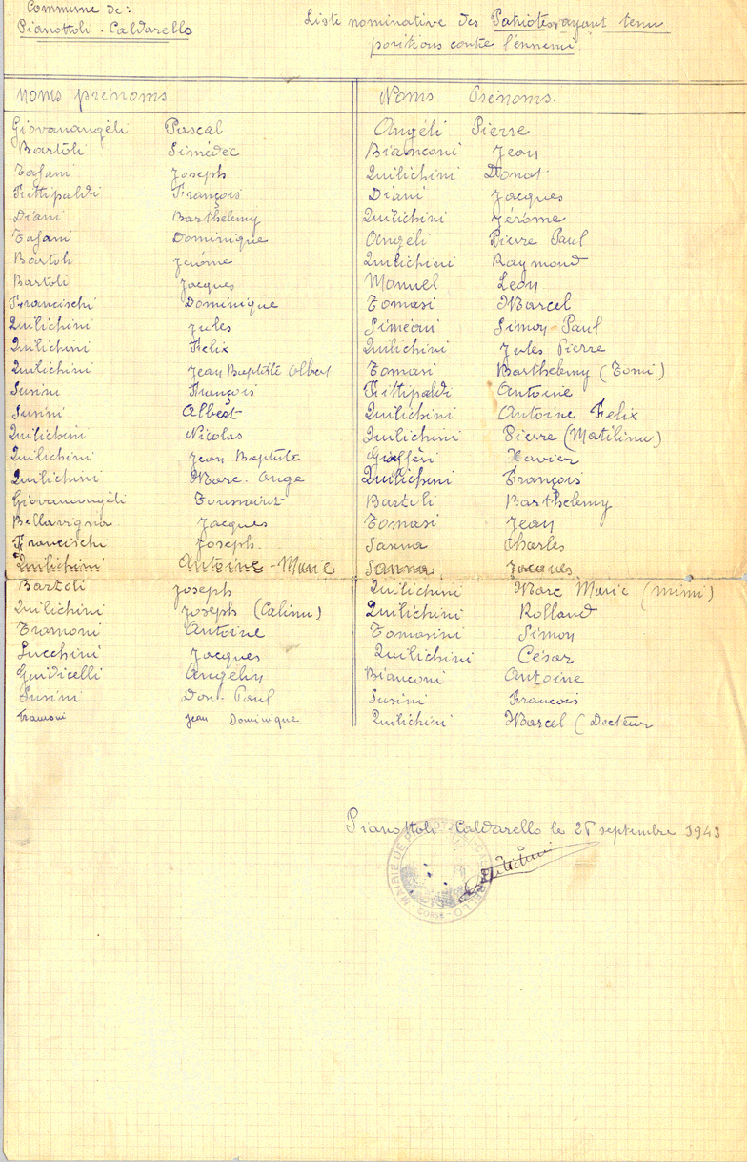 Commune de:
Pianottoli-Caldarello
Liste nominative des Patriotes ayant tenu
positions contre l'ennemi
Noms prénoms
Giovanangéli Pascal
Bartoli Simédéc
Tafani Joseph
Fittipaldi François
Diani Barthélemy
Tafani Dominique
Bartoli Jérôme
Bartoli Jacques
Francischi Dominique
Quilichini Jules
Quilichini Felix
Quilichini Jean Baptiste Albert
Susini François
Susini Albert
Quilichini Nicolas
Quilichini Jean Baptiste
Quilichini Marc-Ange
Giovanangéli Toussaint
Bellavigna Jacques
Francischi Joseph
Quilichini Antoine-Marie
Bartoli Joseph
Quilichini Joseph (Calinu)
Tramoni Antoine
Lucchini Jacques
Guidicelli Angélin
Susini Don-Paul
Tramoni Jean Dominique
Noms Prénoms
Angéli Pierre
Bianconi Jean
Quilichini Donat
Diani Jacques
Quilichini Jérôme
Angéli Pierre Paul
Quilichini Raymond
Manuel Léon
Tomasi Marcel
Siméoni Simon Paul
Quilichini Jules Pierre
Tomasi Barthélemy (Tomi)
Fittipaldi Antoine
Quilichini Antoine Felix
Quilichini Pierre (Matilinu)
Giafféri Xavier
Quilichini François
Bartoli Barthélemy
Tomasi Jean
Sanna Charles
Sanna Jacques
Quilichini Marc Marie (mimi)
Quilichini Rolland
Tomasini Simon
Quilichini César
Bianconi Antoine
Susini François
Quilichini Marcel (Docteur
Pianottoli-Caldarello le septembre 1943